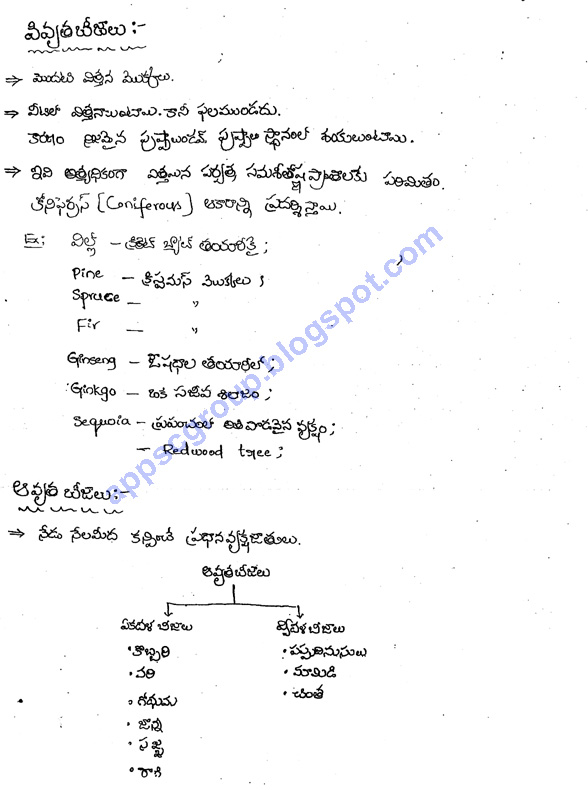 వివృతబీజాలు :-
⇒ మొదటి విత్తన మొక్కలు.
⇒ వీటిలో విత్తనాలుంటాయి. కానీ ఫలముండదు.
కారణం నిజమైన పుష్పాలుండవ్ పుష్పాల స్థానంలో శంకులుంటాయి.
⇒ ఇవి అత్యధికంగా ఎత్తయిన పర్వత, సమశీతోష్ణ ప్రాంతాలకు పరిమితం.
కోనిఫెర్రస్ (Coniferous) ఆకారాన్ని ప్రదర్శిస్తాయి.
Ex: విల్లో - క్రికెట్ బ్యాట్ తయారీకై ;
Pine - క్రిస్టమస్ మొక్కలు ;
Spruce - "
Fir - "
Ginseng - ఔషధాల తయారీలో ;
Ginkgo - ఒక సజీవ శిలాజం ;
Sequoia - ప్రపంచంలో అతి పొడవైన వృక్షం ;
- Redwood tree ;
ఆవృత బీజాలు :-
⇒ నేడు నేలమీద కన్పించే ప్రధాన వృక్షజాతులు.
ఆవృతబీజాలు
ఏకదళ బీజాలు ద్విదళ బీజాలు
• కొబ్బరి • పప్పుదినుసులు
• వరి • మామిడి
• గోధుమ • చింత
• జొన్న
• సజ్జ
• రాగి
appscgroup.blogspot.com